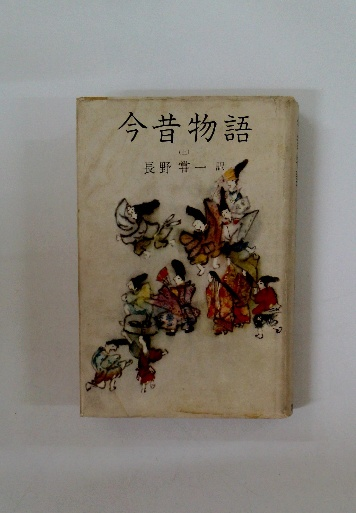 今昔物語
(上)
長野甞一 訳